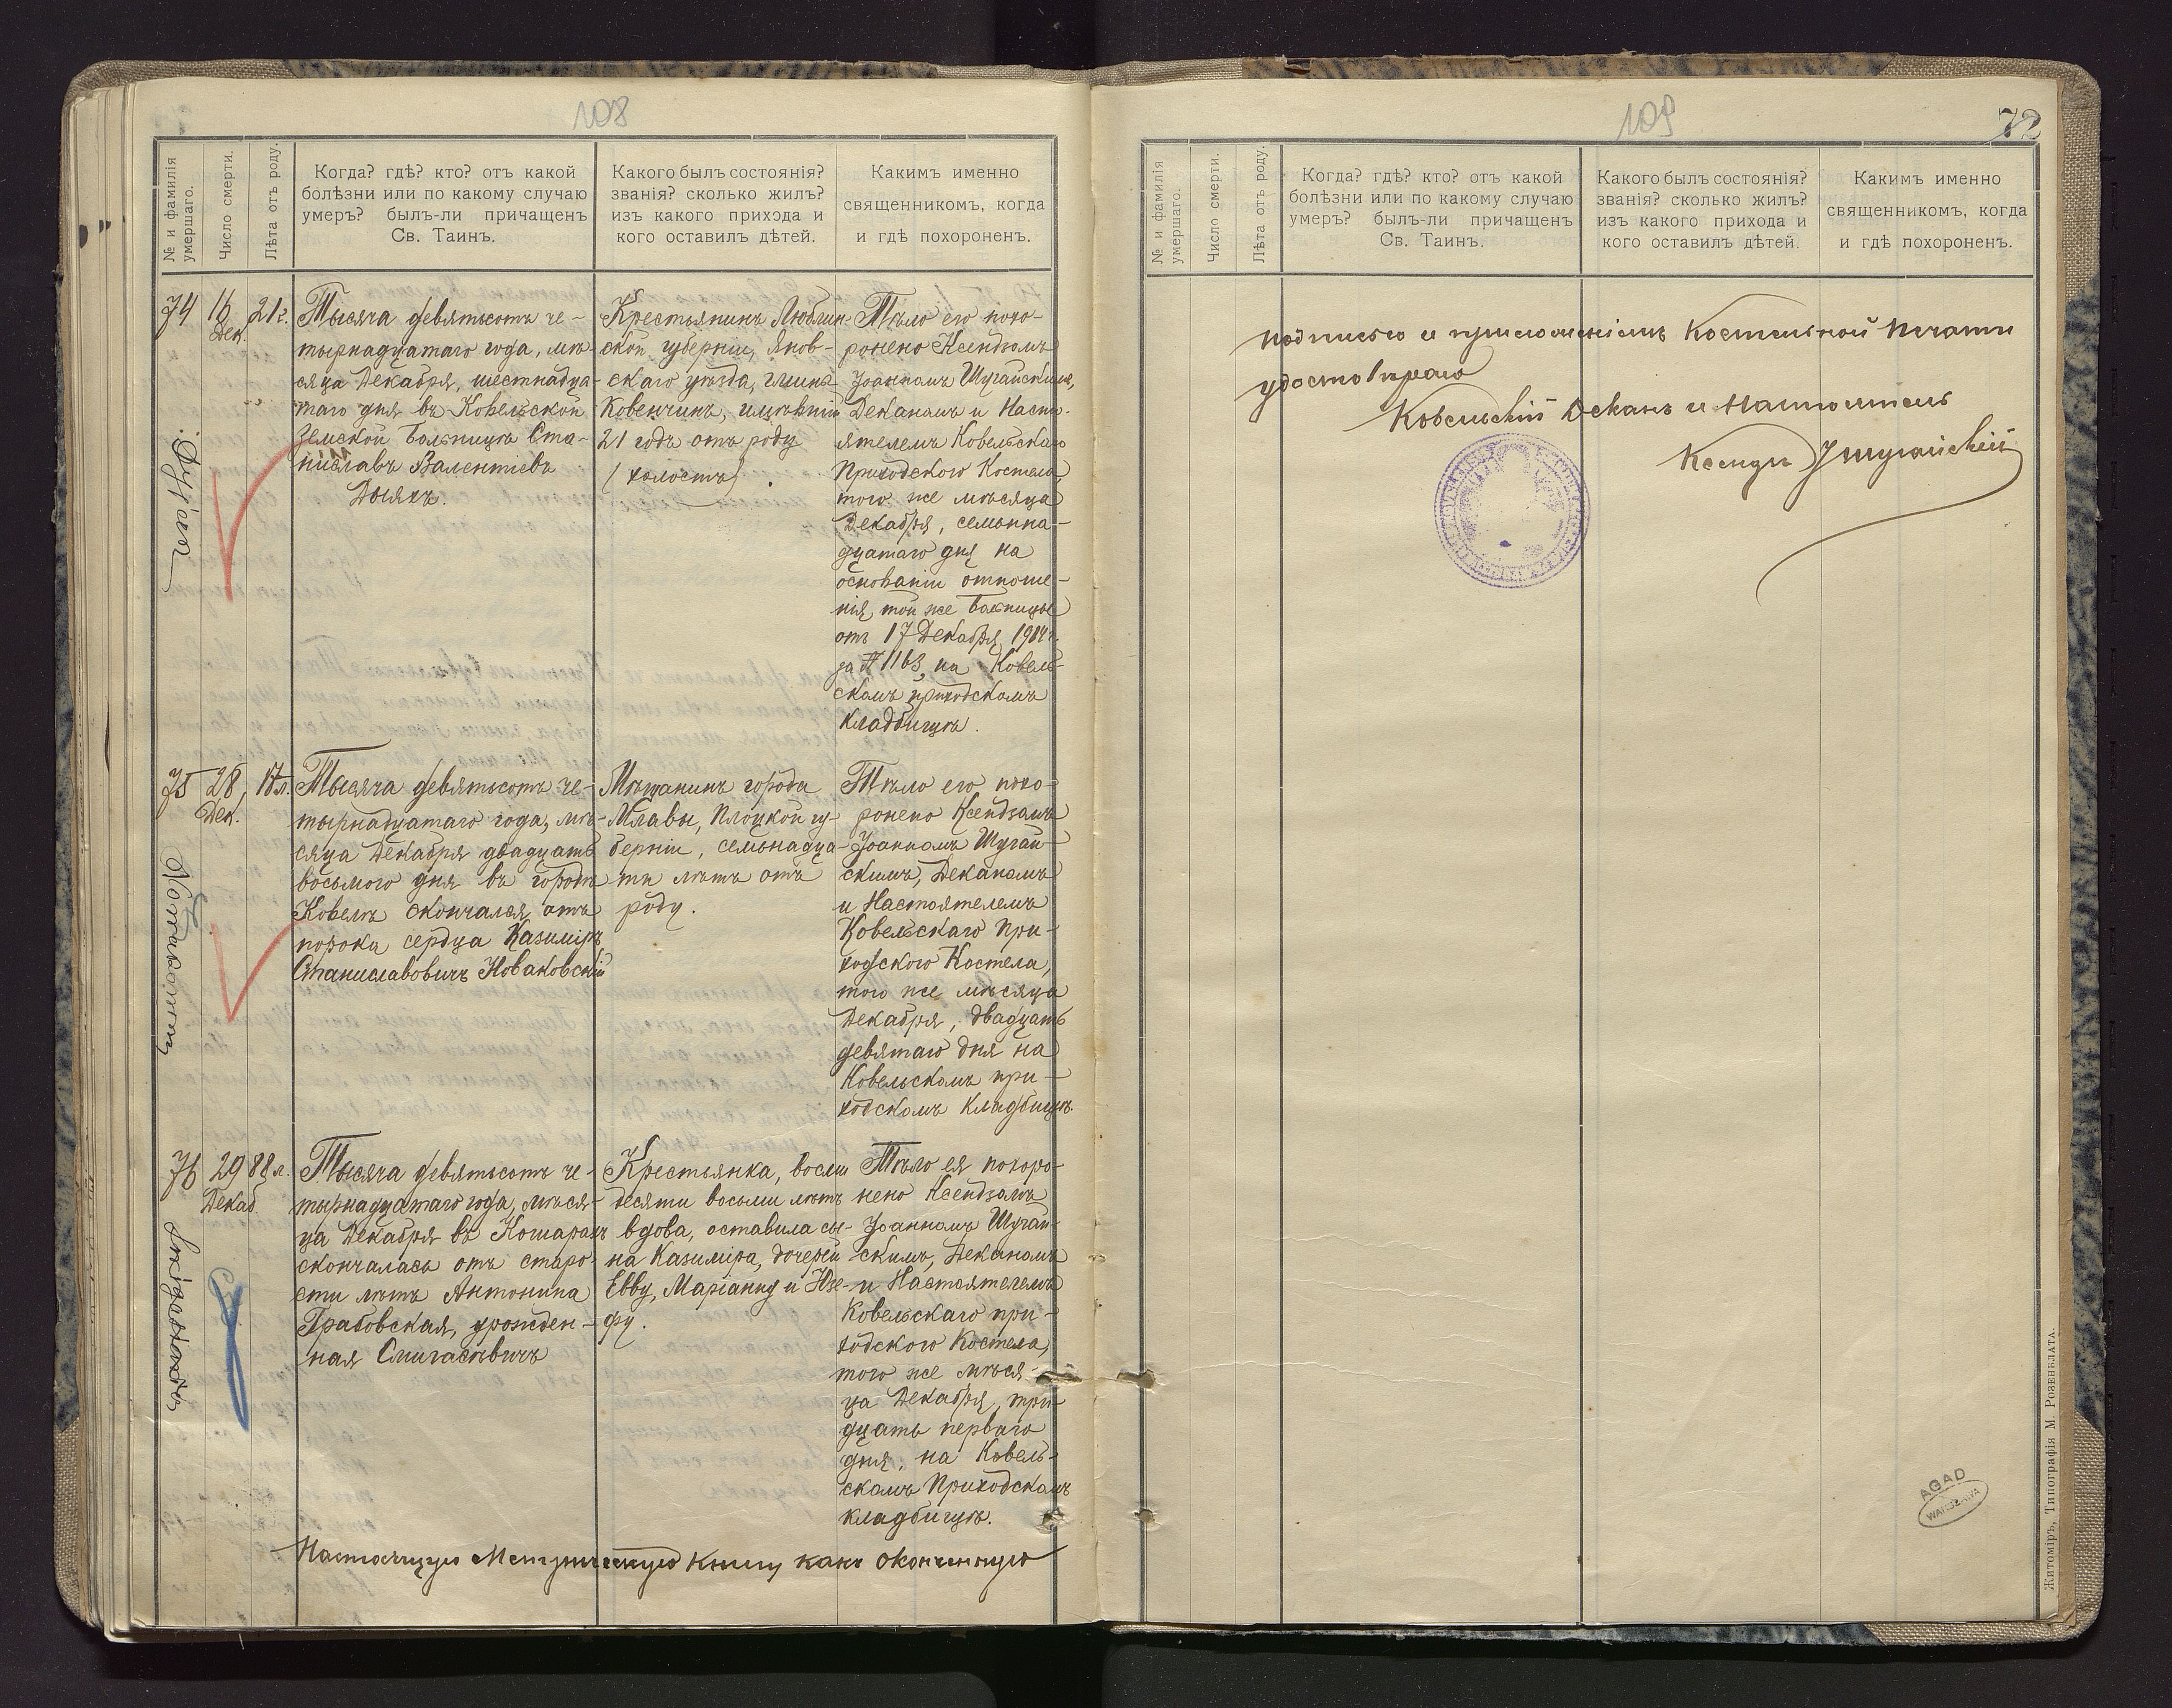 108
№ и фамилія умершаго.
Число смерти.
Лѣта отъ роду.
Когда? гдѣ? кто? отъ какой
болѣзни или по какому случаю
умеръ? былъ-ли причащенъ
Св. Таинъ.
Какого былъ состоянія?
званія? сколько жилъ?
изъ какого прихода и
кого оставилъ дѣтей.
Какимъ именно
священникомъ, когда
и гдѣ похороненъ.
74
16
Дек.
21 г.
Тысяча девятьсотъ че-
тырнадцатаго года, мѣ-
сяца Декабря, шестнадца-
таго дня въ Ковельской
Земской Больницѣ Ста-
ниславъ Валентіевъ
Дыякъ.
Крестьянинъ Люблин-
ской губерніи, Янов-
скаго уѣзда, гмины
21 годъ отъ роду
(холостъ).
Тѣло его похо-
ронено Ксендзомъ
Іоанномъ Шугайскимъ,
Деканомъ и Насто-
ятелемъ Ковельскаго
Приходского Костела,
того же мѣсяца
Декабря, семьнна-
дцатаго дня на
основаніи отноше-
нія той же Больницы
отъ 17 Декабря 1914 г.
за № 1163, на Ковель-
скомъ приходскомъ
кладбищѣ.
75
28
Дек.
17 л.
Тысяча девятьсотъ че-
тырнадцатаго года, мѣ-
сяца Декабря двадцать
восьмого дня въ городѣ
Ковелѣ скончался отъ
порока сердца Казиміръ
Станиславовичъ Новаковскій
Мѣщанинъ города
Млавы, Плоцкой гу-
берніи, семьнадца-
ти лѣтъ отъ
роду.
Тѣло его похо-
ронено Ксендзомъ
Іоанномъ Шугай-
скимъ, Деканомъ
и Настоятелемъ
Ковельскаго При-
ходского Костела,
того же мѣсяца
Декабря, двадцать
девятаго дня на
Ковельскомъ при-
ходскомъ кладбищѣ.
76
29
Декаб.
88 л.
Тысяча девятьсотъ че-
тырнадцатаго года, мѣся-
ца Декабря въ Кошарахъ
скончалась отъ старо-
сти лѣтъ Антонина
Грабовская, урожден-
ная
Крестьянка, восьми
десяти восьми лѣтъ
вдова, оставила сы-
на Казиміра, дочерей
Евву, Маріанну и Юзе-
фу.
Тѣло ея похоро-
нено Ксендзомъ
Іоанномъ Шугай-
скимъ, Деканомъ
и Настоятелемъ
Ковельскаго при-
ходского Костела,
того же мѣся-
ца Декабря, три-
дцать перваго
дня, на Ковель-
скомъ Приходскомъ
кладбищѣ.
Настоящую Метрическую Книгу какъ оконченную
109
72
№ и фамилія умершаго.
Число смерти.
Лѣта отъ роду.
Когда? гдѣ? кто? отъ какой
болѣзни или по какому случаю
умеръ? былъ-ли причащенъ
Св. Таинъ.
Какого былъ состоянія?
званія? сколько жилъ?
изъ какого прихода и
кого оставилъ дѣтей.
Какимъ именно
священникомъ, когда
и гдѣ похороненъ.
подписью и приложеніемъ Костельной Печати
удостовѣряю
Ковельскій Деканъ и Настоятель
Ксендзъ Шугайскій
AGAD
WARSZAWA
Житоміръ, Типографія М. Розенблата.